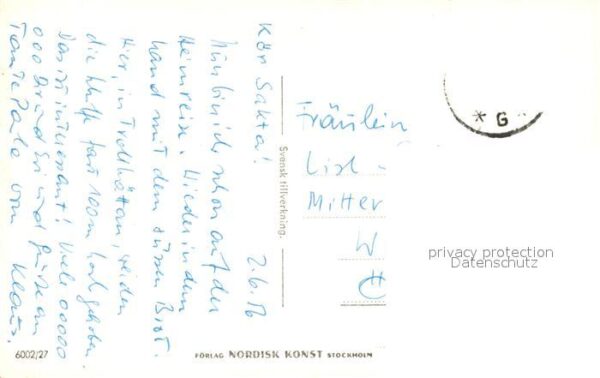 Kör Sakta! 2.6.56
Nun bin ich schon auf der
Heimreise. Wieder in dem
Land mit dem süssen Brot.
Hier, in Trollhättan, werden
die Schiffe fast 100m hoch gehoben
Das ist interessant! Viele 00000
000 und Grüsse an
Tante Pale von Klaus.
Svensk tillverkning.
Fräulein
Lisl
Mitter
W
* G *
privacy protection
Datenschutz
6002/27
FÖRLAG NORDISK KONST STOCKHOLM